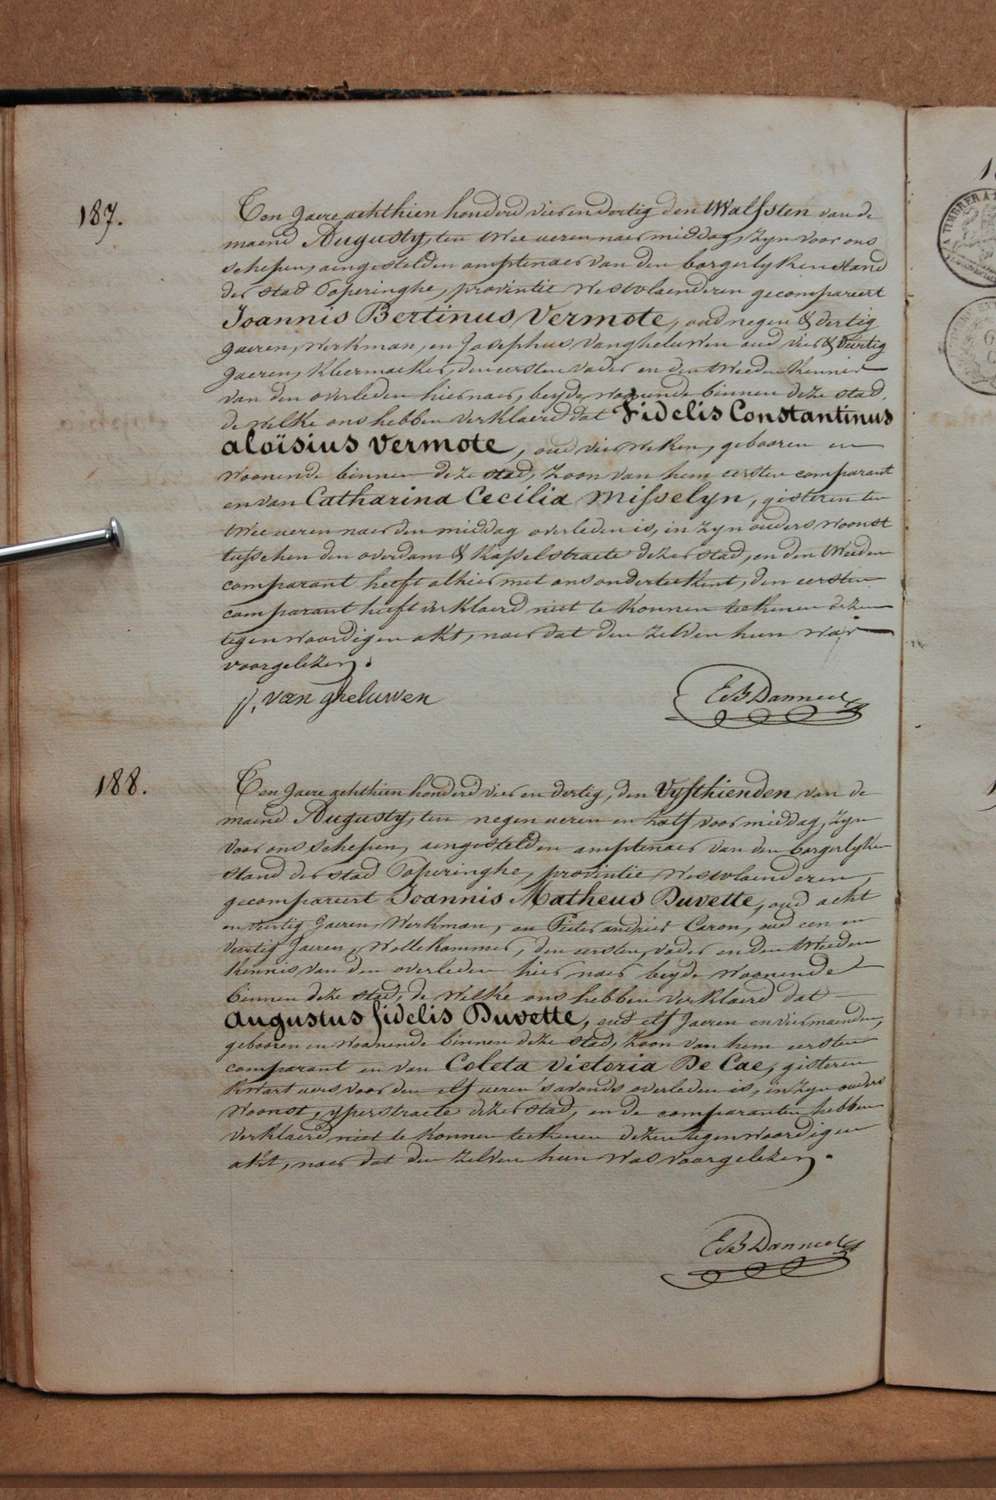 187.
Ten Jaere achthien honderd vier en dertig den Walfsten van de
maend Augusty, ten twee ueren naer middag, zyn voor ons
schepen, aengestelden amptenaer van den borgerlyken stand
der stad Poperinghe, provintie Westvlaenderen gecompareert
Joannis Bertinus Vermote, oud negen & dertig
Jaeren, werkman, en Josephus Vangheluwen oud vier & veertig
Jaeren, kleermaeker, den eersten vader en den tweeden kennis
van den overleden hier naer, beyde woonende binnen deze stad,
de welke ons hebben verklaerd dat Fidelis Constantinus
aloïsius vermote, oud vier weken, gebooren en
woonende binnen deze stad, zoon van hem eersten comparant
en van Catharina Cecilia Misselyn, gisteren ten
twee ueren naer den middag overleden is, in zyn ouders woonst
tusschen den overdam & kasselstraete dezer stad, en den tweeden
comparant heeft alhier met ons onderteekent, den eersten
comparant heeft verklaerd niet te konnen teekenen dezen
tegenwoordigen akt, naer dat den zelven hun was
voorgelezen.
j. van gheluwen
188.
Ten Jaere achthien honderd vier en dertig, den Vyfthienden van de
maend Augusty, ten negen ueren en half voor middag, zyn
voor ons schepen, aengestelden amptenaer van den borgerlyken
stand der stad Poperinghe, provintie Westvlaenderen,
gecompareert Joannis Matheus Duvette, oud acht
en veertig Jaeren, Werkman, en Pieter andries Caron, oud een en
veertig Jaeren, Wollekammer, den eersten, vader en den tweeden
kennis van den overleden hier naer beyde woonende
binnen deze stad, de welke ons hebben verklaerd dat
augustus fidelis Duvette, oud elf Jaeren en vier maenden,
gebooren en woonende binnen deze stad, zoon van hem eersten
comparant en van Coleta victoria De Cae, gisteren
kwart uers voor den elf ueren 'savonds overleden is, in zyn ouders
woonst, yperstraete dezer stad, en de comparanten hebben
verklaerd niet te konnen teekenen dezen tegenwoordigen
akt, naer dat den zelven hun was voorgelezen.